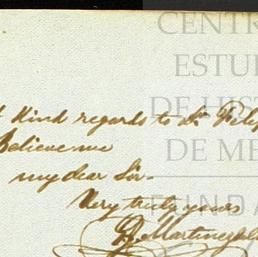 CENTR
ESTU
DE HIST
DE ME
FUND
kind regards to
Believe me
my dear Sir.
Very truly yours
Martinez